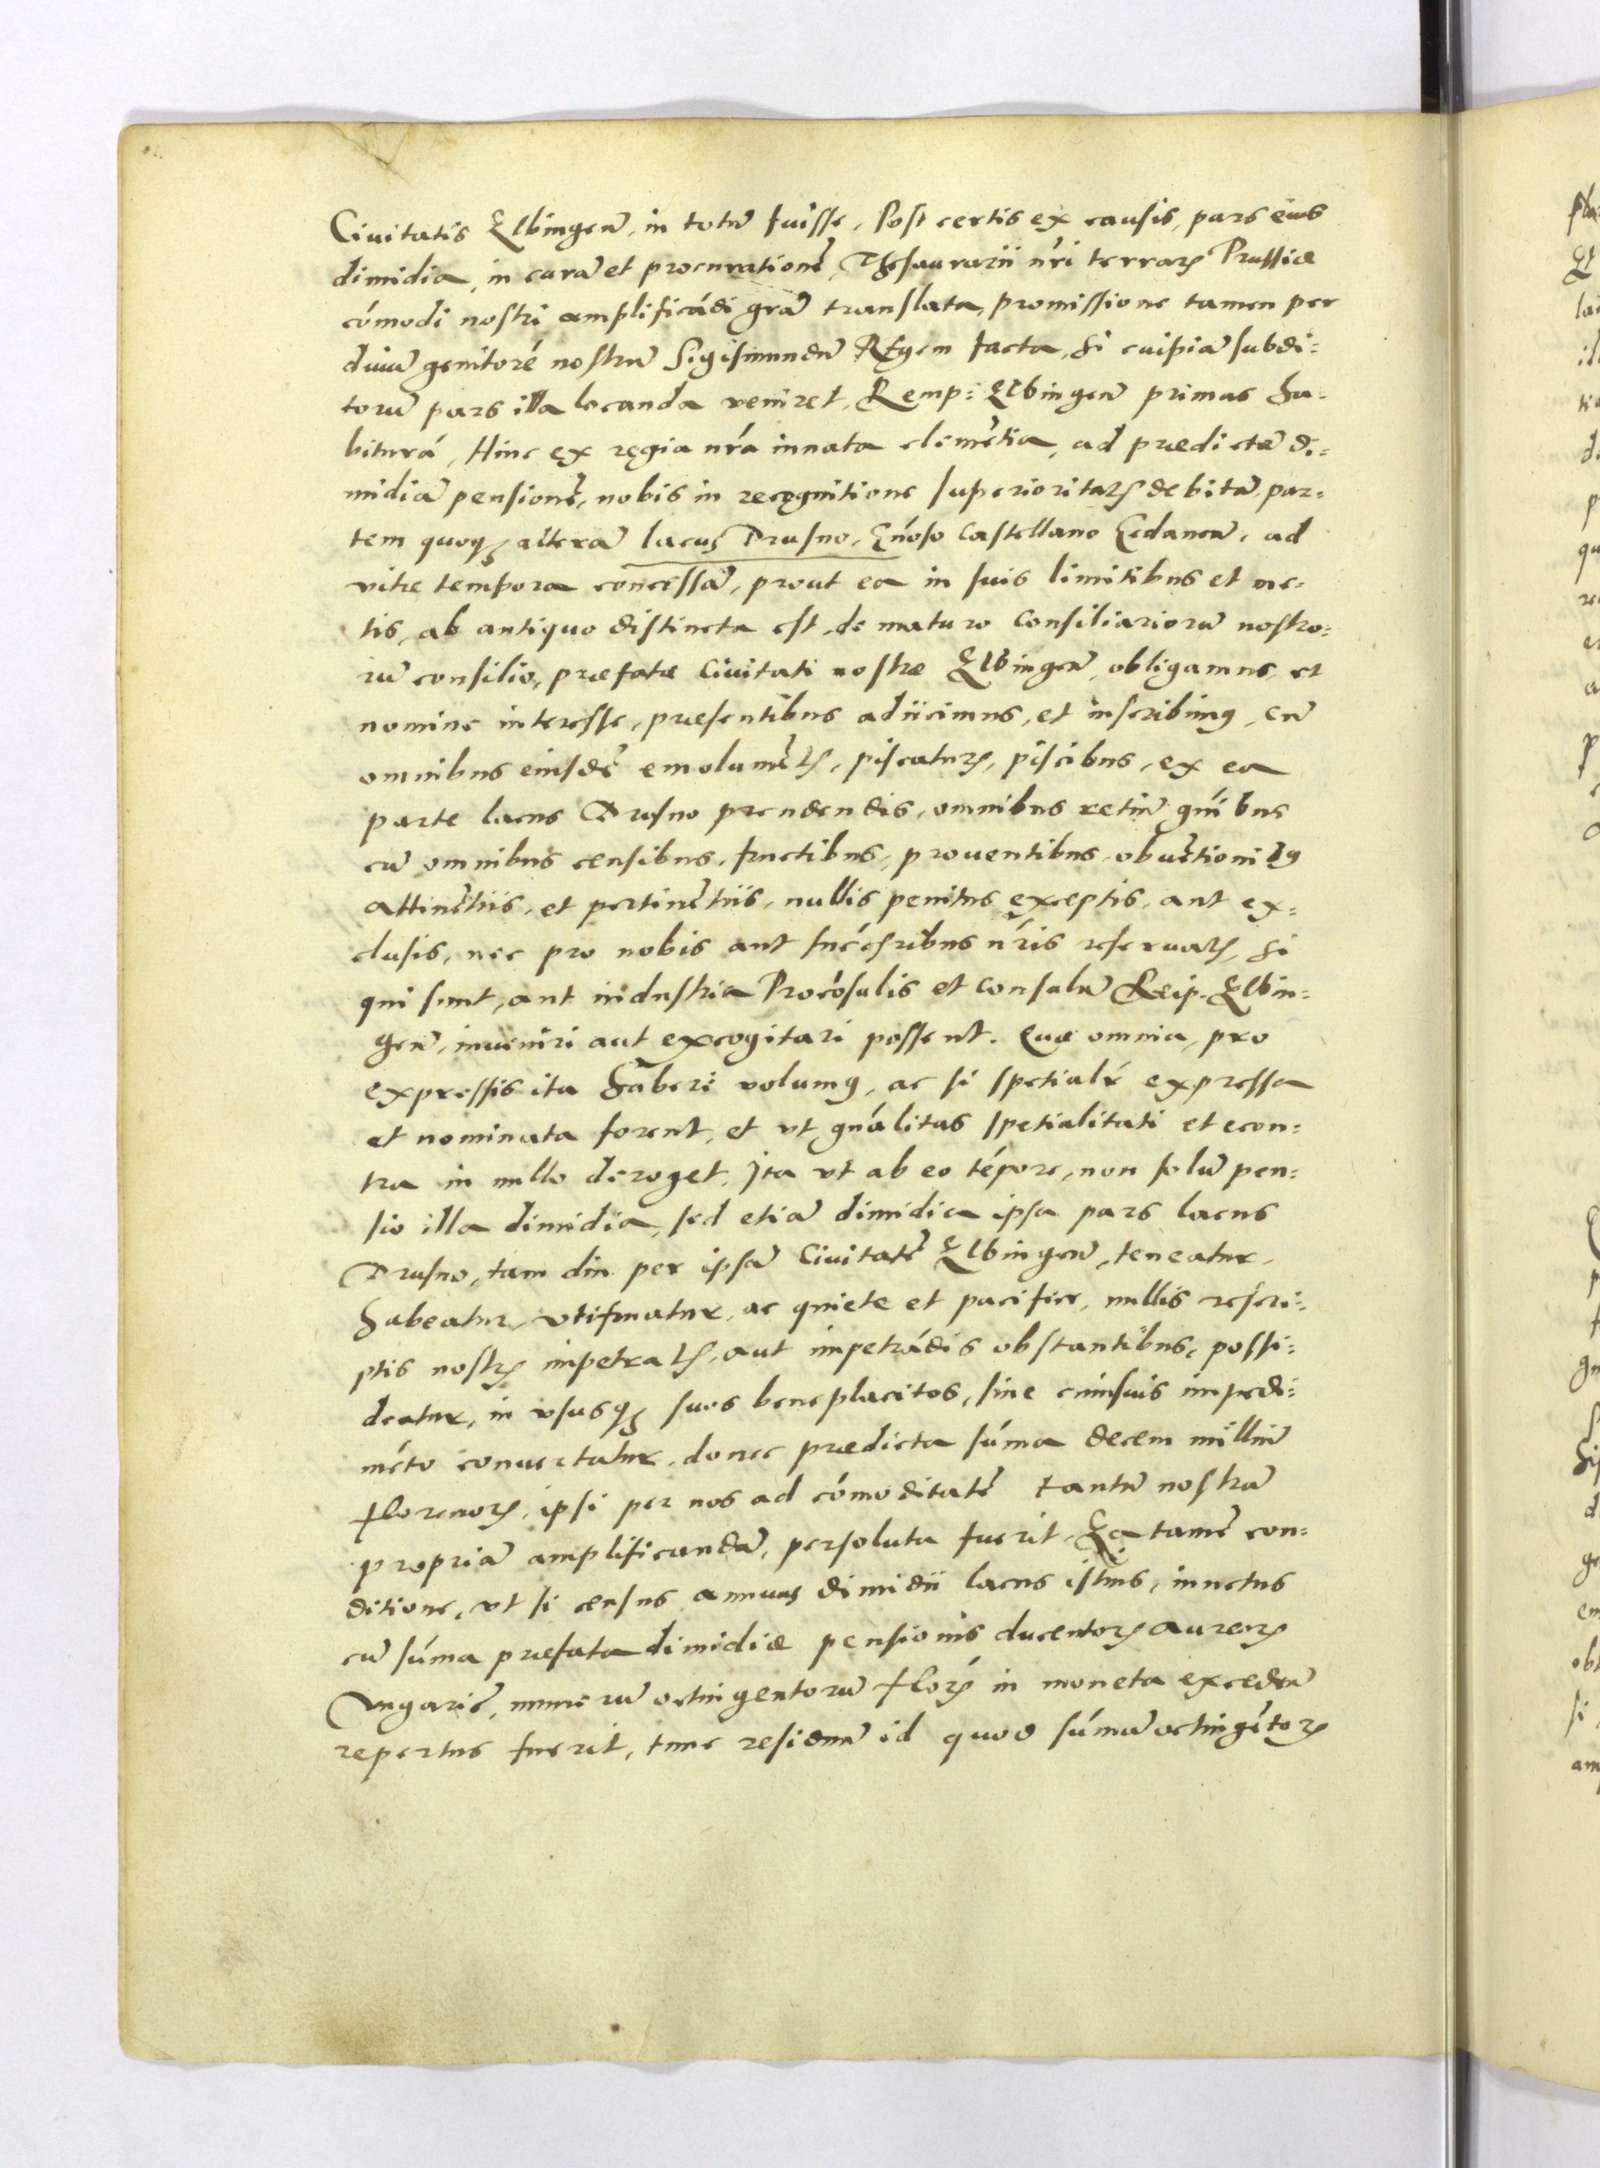 Ciuitatis Elbingen̄, in totū fuisse, Post certis ex causis, pars eius
dimidia, in curā et procurationē, Thesaurarii nr̄i terrarꝝ Prussiæ
cōmodi nostri amplificādi gr̄a translata, promissione tamen per
diuū genitorē nostrū Sigismundū REgem facta, si cuipiā subdi:
torū pars illa locanda veniret, Remp: Elbingen̄ primas ha:
biturā, Hinc ex regia nr̄a innata clemētia, ad prædictā di:
midiā pensionē, nobis in recognitione superioritatꝭ debitā, par:
tem quoqꝫ alterā lacus Drusno, Gn̄oso Castellano Gedanen̄, ad
vitæ tempora concessā, prout ea in suis limitibus et me:
tis, ab antiquo distincta est, de maturo Consiliariorū nostro:
rū consilio, præfatæ Ciuitati nostræ Elbingen̄, obligamus, et
nomine interesse, præsentibus adiicimus, et inscribimꝰ, cū
omnibus eiusdē emolumētꝭ, piscaturꝭ, piscibus, ex ea
parte lacus Drusno prendendis, omnibus retiū gn̄ibus
cū omnibus censibus, fructibus, prouentibus, obuētionibꝰ
attinētiis, et pertinētiis, nullis penitus exceptis, aut ex:
clusis, nec pro nobis aut succesribus nr̄is reseruatꝭ, si
qui sunt, aut industria Procōsulis et Consulū Reip. Elbin:
gen̄, inueniri aut excogitari possent. Quæ omnia, pro
expressis ita haberi volumꝰ, ac si spetialr̄ expressa
et nominata forent, et vt gn̄alitas spetialitati et econ:
tra in nullo deroget. Ita vt ab eo tēpore, non solū pen:
sio illa dimidia, sed etiā dimidia ipsa pars lacus
Drusno, tam diu per ipsā Ciuitatē Elbingen̄, teneatur,
habeatur, vtifruatur, ac quiete et pacifice, nullis rescri:
ptis nostrꝭ impetratꝭ, aut impetrādis obstantibus, possi:
deatur, in vsusqꝫ suos beneplacitos, sine cuiusuis impedi:
mēto conuertatur, donec prædicta sūma decem milliū
florenorꝝ, ipsi per nos ad cōmoditatē tantū nostrā
propriā amplificandā, persoluta fuerit, Ea tamē con:
ditione, vt si census annuus dimidii lacus istius, iunctus
cū sūma præfata dimidiæ pensionis ducentorꝝ aureorꝝ
Vngaric̄, numerū octingentorū florꝝ in moneta excedere
repertus fuerit, tunc residuū id quod sūmā octingētorꝝ